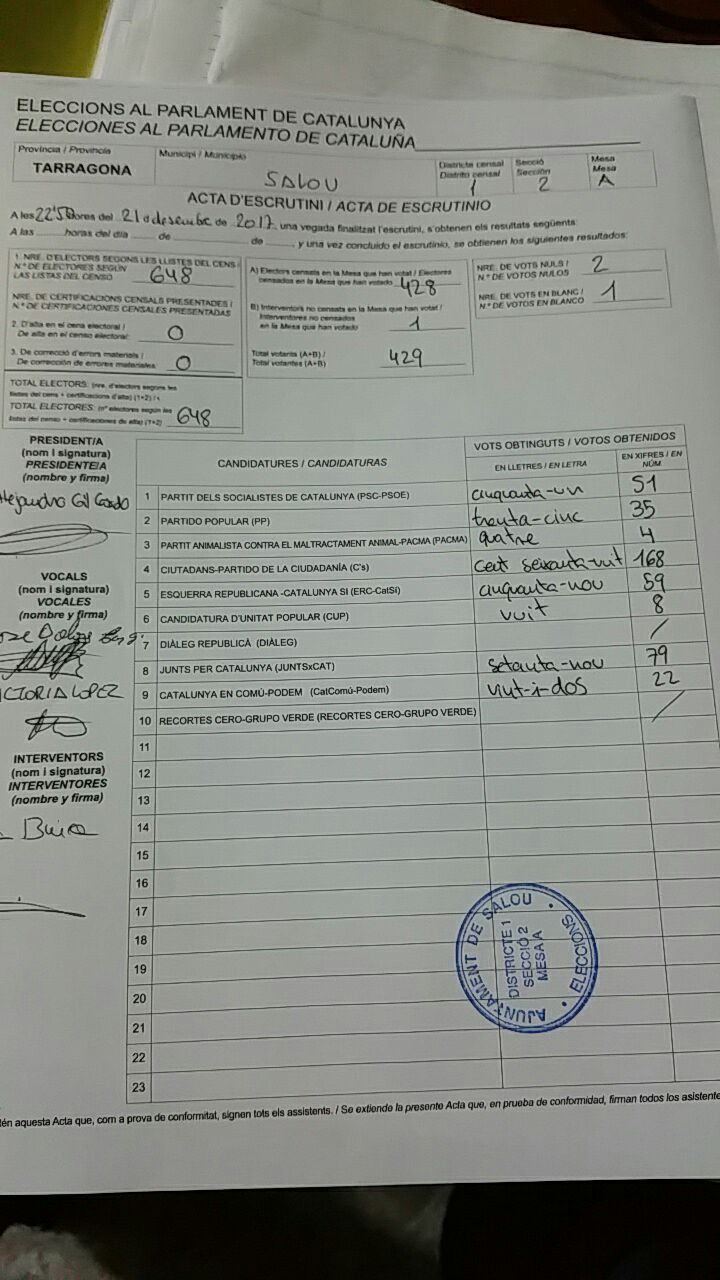 ELECCIONS AL PARLAMENT DE CATALUNYA
ELECCIONES AL PARLAMENTO DE CATALUÑA
Província / Provincia
TARRAGONA
Municipi / Municipio
SALOU
Districte censal
Distrito censal
1
Secció
Sección
2
Mesa
Mesa
A
ACTA D'ESCRUTINI / ACTA DE ESCRUTINIO
A les 22'50 hores del 21 d desembre de 2017, una vegada finalitzat l'escrutini, s'obtenen els resultats següents:
A las ........ horas del día ........ de ........ de ........, y una vez concluido el escrutinio, se obtienen los siguientes resultados:
1. NRE. D'ELECTORS SEGONS LES LLISTES DEL CENS /
N.º DE ELECTORES SEGÚN
LAS LISTAS DEL CENSO
648
NRE. DE CERTIFICACIONS CENSALS PRESENTADES /
N.º DE CERTIFICACIONES CENSALES PRESENTADAS
2. D'alta en el cens electoral /
De alta en el censo electoral:
0
3. De correcció d'errors materials /
De corrección de errores materiales:
0
TOTAL ELECTORS: (nre. d'electors segons les
llistes del cens + certificacions d'alta) (1+2) /
TOTAL ELECTORES: (nº electores según las
listas del censo + certificaciones de alta) (1+2)
648
A) Electors censats en la Mesa que han votat / Electores
censados en la Mesa que han votado
428
B) Interventors no censats en la Mesa que han votat /
Interventores no censados
en la Mesa que han votado
1
Total votants (A+B) /
Total votantes (A+B)
429
NRE. DE VOTS NULS /
N.º DE VOTOS NULOS
2
NRE. DE VOTS EN BLANC /
N.º DE VOTOS EN BLANCO
1
PRESIDENT/A
(nom i signatura)
PRESIDENTE/A
(nombre y firma)
VOCALS
(nom i signatura)
VOCALES
(nombre y firma)
VICTORIA LOPEZ
INTERVENTORS
(nom i signatura)
INTERVENTORES
(nombre y firma)
CANDIDATURES / CANDIDATURAS
VOTS OBTINGUTS / VOTOS OBTENIDOS
EN LLETRES / EN LETRA
EN XIFRES / EN NÚM
1 PARTIT DELS SOCIALISTES DE CATALUNYA (PSC-PSOE) cinquanta-un 51
2 PARTIDO POPULAR (PP) trenta-cinc 35
3 PARTIT ANIMALISTA CONTRA EL MALTRACTAMENT ANIMAL-PACMA (PACMA) quatre 4
4 CIUTADANS-PARTIDO DE LA CIUDADANÍA (C's) cent seixanta-vuit 168
5 ESQUERRA REPUBLICANA -CATALUNYA SI (ERC-CatSí) cinquanta-nou 59
6 CANDIDATURA D'UNITAT POPULAR (CUP) vuit 8
7 DIÀLEG REPUBLICÀ (DIÀLEG) /
8 JUNTS PER CATALUNYA (JUNTSxCAT) setanta-nou 79
9 CATALUNYA EN COMÚ-PODEM (CatComú-Podem) vint-i-dos 22
10 RECORTES CERO-GRUPO VERDE (RECORTES CERO-GRUPO VERDE) /
11
12
13
14
15
16
17
18
19
20
21
22
23
AJUNTAMENT DE SALOU · ELECCIONS ·
DISTRICTE 1
SECCIÓ 2
MESA A
tén aquesta Acta que, com a prova de conformitat, signen tots els assistents. / Se extiende la presente Acta que, en prueba de conformidad, firman todos los asistente